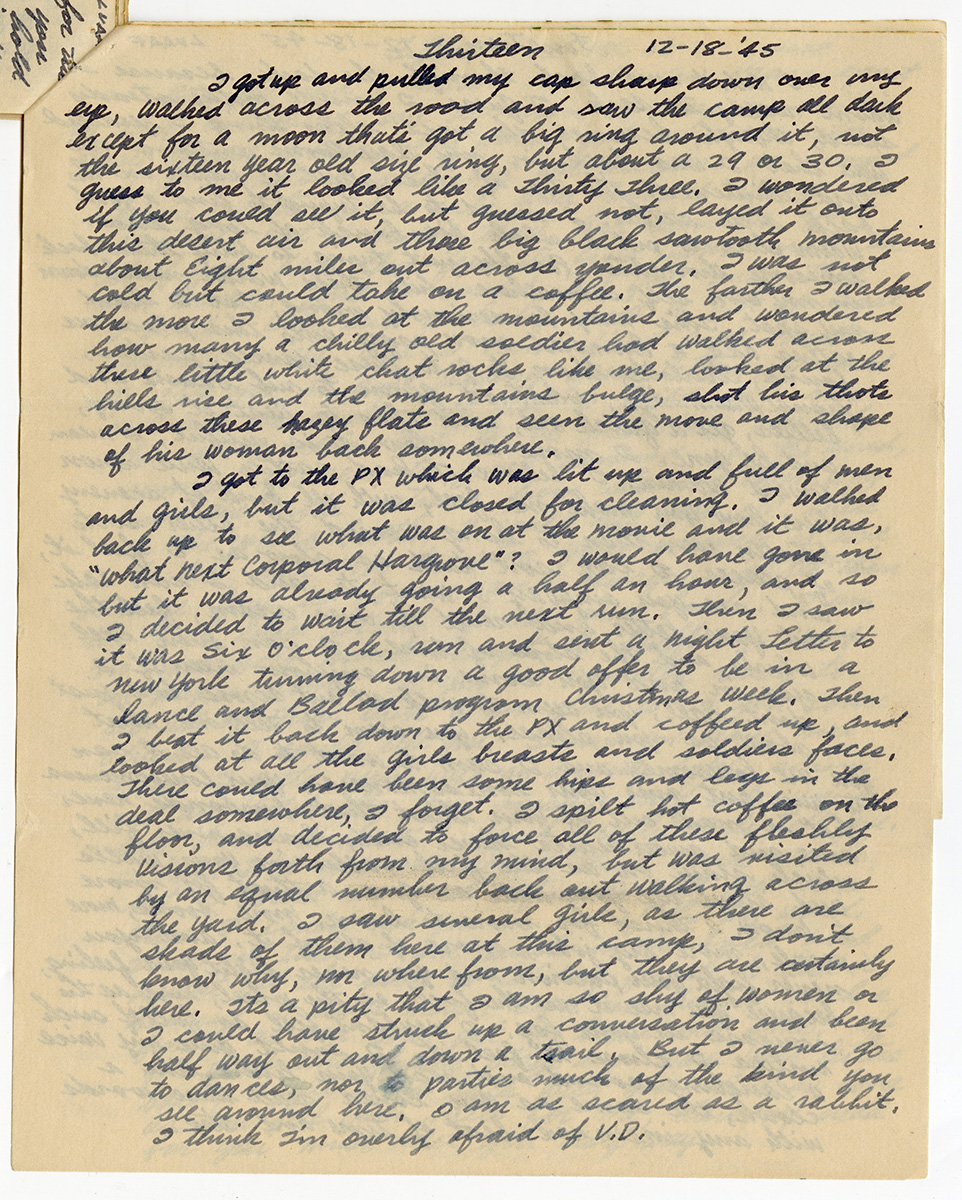 for the
you
hold
Thirteen 12-18-'45
I got up and pulled my cap sharp down over my
eye, walked across the road and saw the camp all dark
except for a moon thats got a big ring around it, not
the sixteen year old size ring, but about a 29 or 30. I
guess to me it looked like a Thirty Three. I wondered
if you could see it, but guessed not, layed it onto
this desert air and those big black sawtooth mountains
about Eight miles out across yonder. I was not
cold but could take on a coffee. The farther I walked
the more I looked at the mountains and wondered
how many a chilly old soldier had walked across
these little white chat rocks like me, looked at the
hills rise and the mountains bulge, shot his thots
across these hazey flats and seen the move and shape
of his woman back somewhere.
I got to the PX which was lit up and full of men
and girls, but it was closed for cleaning. I walked
back up to see what was on at the movie and it was,
"What Next Corporal Hargrove"? I would have gone in
but it was already going a half an hour, and so
I decided to wait till the next run. Then I saw
it was Six O'clock, run and sent a Night Letter to
New York turning down a good offer to be in a
Dance and Ballad program Christmas week. Then
I beat it back down to the PX and coffeed up, and
looked at all the girls breasts and soldiers faces.
There could have been some hips and legs in the
deal somewhere, I forget. I spilt hot coffee on the
floor, and decided to force all of these fleshly
visions forth from my mind, but was visited
by an equal number back out walking across
the yard. I saw several girls, as there are
skads of them here at this camp, I don't
know why, nor where from, but they are certainly
here. Its a pity that I am so shy of women or
I could have struck up a conversation and been
half way out and down a trail. But I never go
to dances, nor to parties much of the kind you
see around here. I am as scared as a rabbit.
I think I'm overly afraid of V.D.